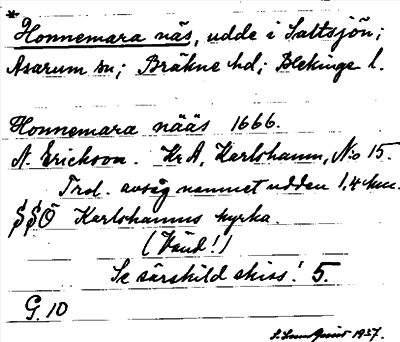 *
Honnemara näs, udde i Saltsjön;
Asarum sn; Bräkne hd; Blekinge l.
Honnemara nääs 1666.
N. Ericksson. KrA, Karlshamn, N:o 15.
Trol. avsåg namnet udden 1,4 km.
SSÖ Karlshamns kyrka.
(Vänd!)
Se särskild skiss! 5.
G. 10
S. Lundquist 1937.